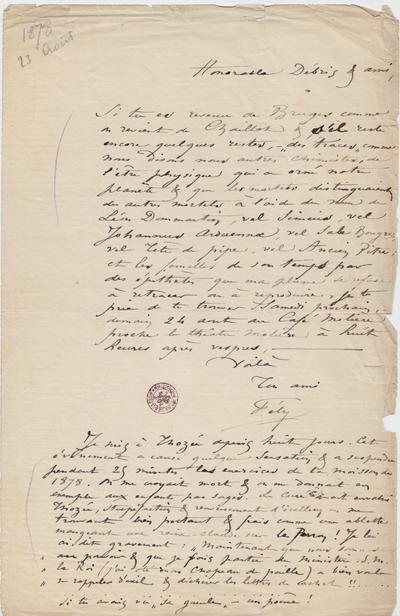 1878
23 Août
Honorable Débris & ami,
Si tu es revenu de Bruges comme
on revient de Chaillot & s'il reste
encore quelques restes, – "des traces" comme
nous disons nous autres chimistes, de
l'être physique qui a orné notre
planète & que les mortels distinguaient
des autres mortels à l'aide du nom de
Léon Dommartin, vel
Johannes Arduenna, vel Sale Bougre,
vel Tête de pipe, vel Ancien Pitre,
et les femelles de son temps par
des épithètes que ma plume se refuse
à retracer ou à reproduire, je te
prie de te trouver Samedi prochain,
demain 24 aout au Café Molière
proche le théâtre Molière à huit
heures après vespres.
Voilà
Ton ami
Fély
Je suis à Thozée depuis huit jours. Cet
évènement a causé quelque sensation & a suspendu
pendant 25 minutes les exercices de la moisson de
1878. On me croyait mort & on me donnait en
exemple aux enfants pas sages. Le Curé
Thozée, Stupéfaction & en me
trouvant bien portant & frais comme une ablette
mangeant une reine claude sur le Perron! Je lui
ai dit gravement: "Maintenant que nous sommes
au pouvoir & que je fais partie du Ministère S. M.
le Roi (j'ai ôté mon chapeau de paille) a bien voulu
me rappeler d'exil & déchirer les lettres de cachet!!..
Si tu avais vu "sa gueule" – un poème!